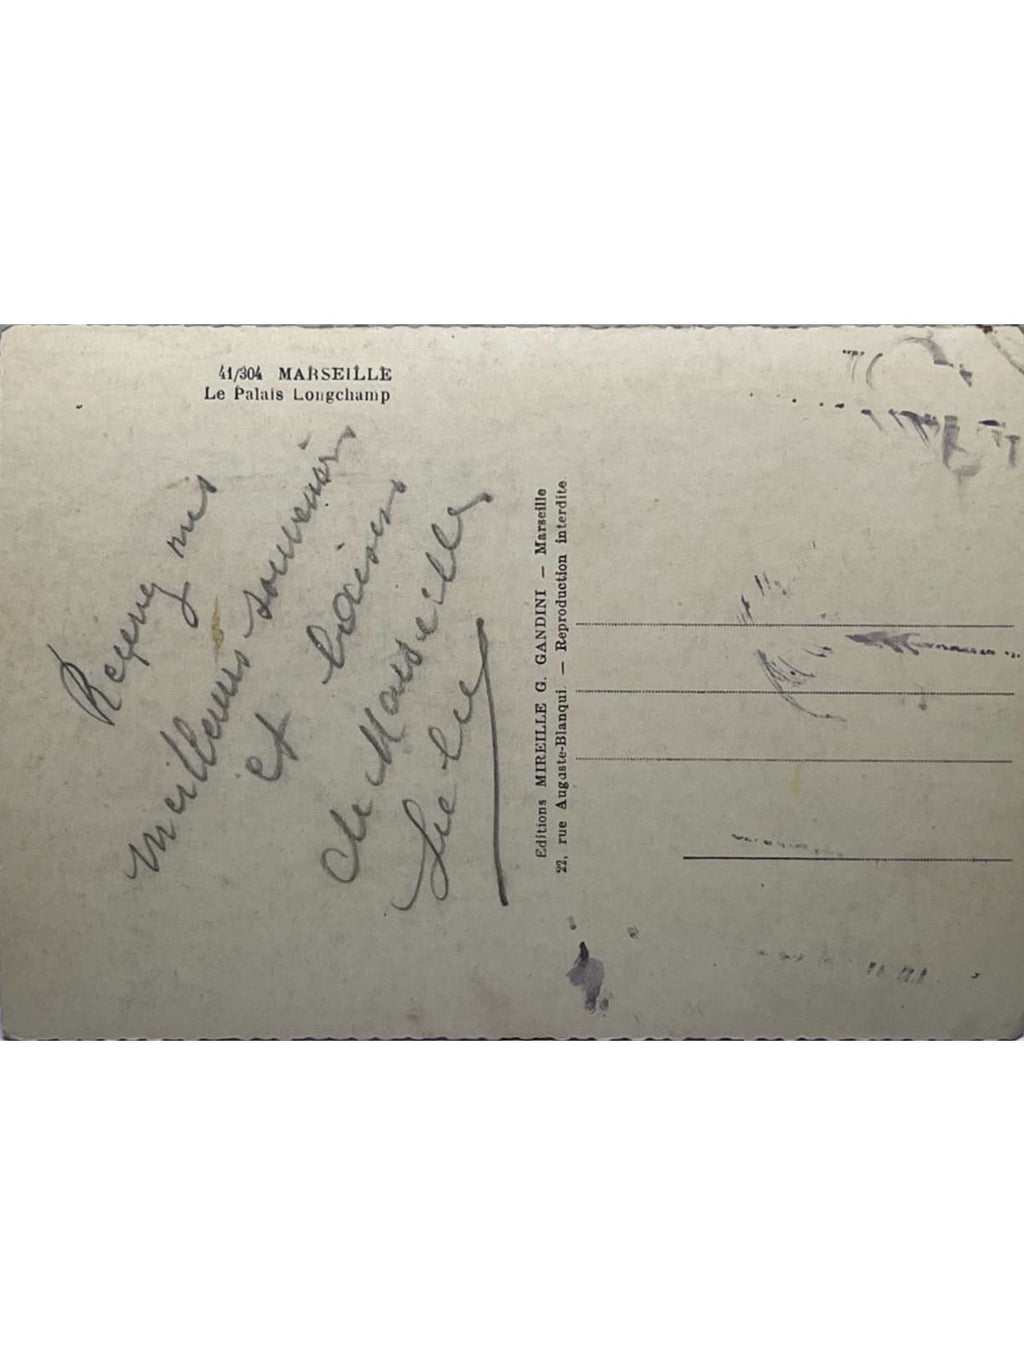 41/304 MARSEILLE
Le Palais Longchamp
Recevez mes
meilleurs souvenirs
et baisers
de Marseille
Editions MIREILLE G. GANDINI — Marseille
22, rue Auguste-Blanqui. — Reproduction interdite